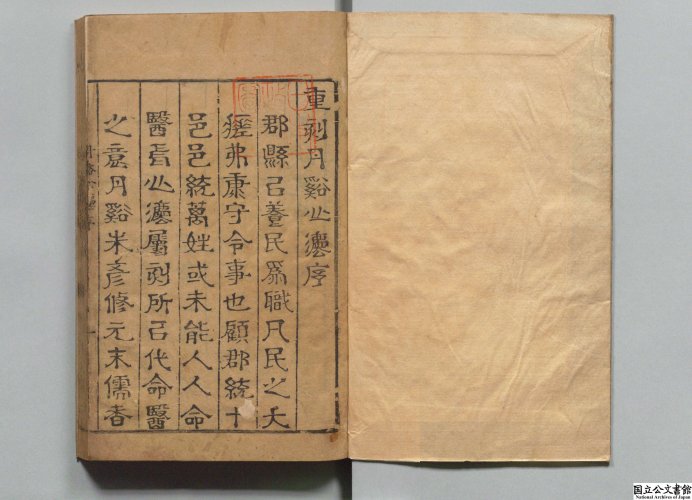 重刻丹谿心灋序
郡縣㠯養民爲職凡民之夭
瘥弗康守令事也顧郡統十
邑邑統萬姓或未能人人命
醫有心灋屬刻所㠯代命醫
之意丹谿朱彥修元末儒者
国立公文書館
National Archives of Japan